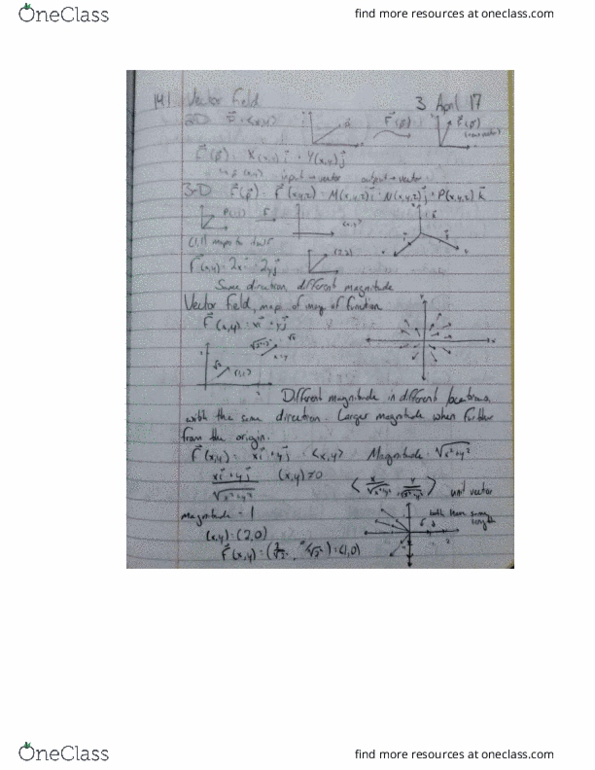 OneClass
find more resources at oneclass.com
14.1 Vector Field
3 April 17
input → vector output → vector
3-D F(p) = F(x,y,z) = M(x,y,z)i + N(x,y,z)j + P(x,y,z)k
(1,1) maps to
F(x,y) = 2xi + 2yj
(2,2)
Same direction, different magnitude
Vector Field, map of many of function
F(x,y) = xi + yj
(1,1)
Different magnitude in different locations
with the same direction. Larger magnitude when further
from the origin.
F(x,y) = xi + yj = <x,y> Magnitude = √x²+y²
xi + yj / √x²+y² (x,y) ≠ 0 < x/√x²+y², y/√x²+y² > unit vector
magnitude = 1
both have same length
(x,y) = (2,0)
F(x,y) = = (1,0)
OneClass
find more resources at oneclass.com